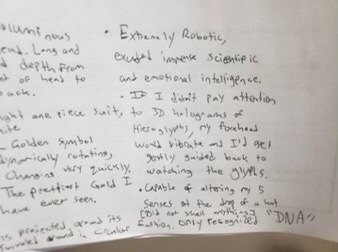 oluminous
ead. Long and
d depth from
t of head to
ack.
ght one piece suit, to
ite
Golden symbol
dynamically rotating,
Changing very quickly.
The prettiest Gold I
have ever seen.
is projected around its
around in circular
• Extremely Robotic,
exuded immense scientific
and emotional intelligence.
• If I didn't pay attention
3D holograms of
Hieroglyphs, my forehead
would vibrate and I'd get
gently guided back to
watching the glyphs.
• Capable of altering my 5
senses at the drop of a hat
[Did not smell anything.]
fashion. only recognized "DNA"